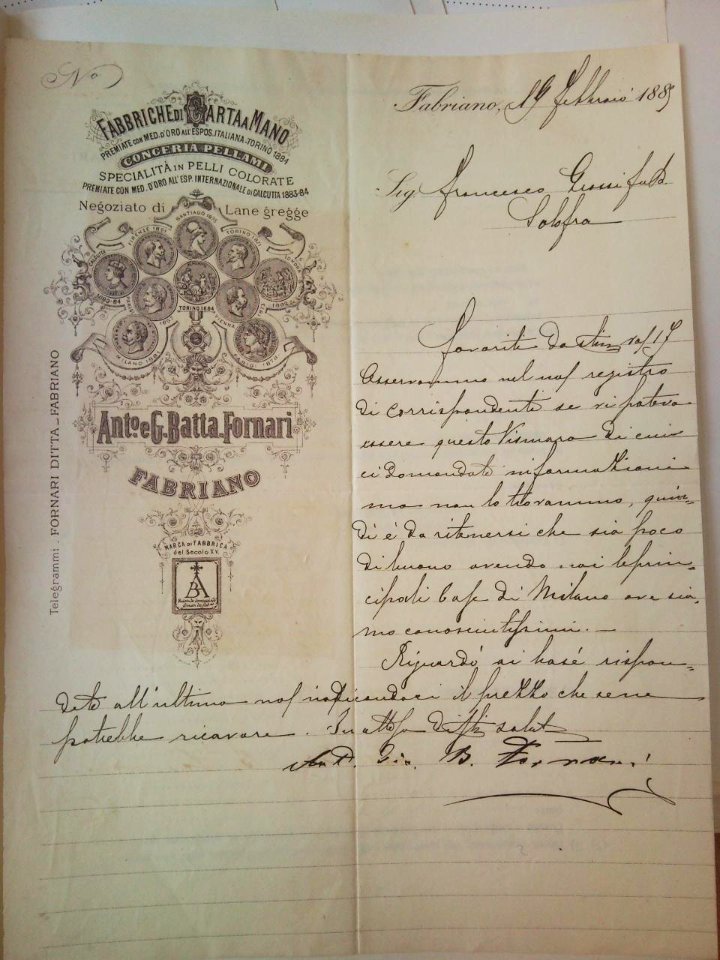 No
FABBRICHE DI CARTA A MANO
PREMIATE CON MED. D'ORO ALL'ESPOS. ITALIANA-TORINO 1884
CONCERIA PELLAMI
SPECIALITÀ IN PELLI COLORATE
PREMIATE CON MED. D'ORO ALL'ESP. INTERNAZIONALE DI CALCUTTA 1883-84
Negoziato di Lane gregge
SANTIAGO 1875
FIRENZE 1861
TORINO 1884
MILANO 1881
PARIGI 1878
Anto. e G. Batta. Fornari
FABRIANO
MARCA DI FABBRICA
del Secolo XV.
AB
Telegrammi: FORNARI DITTA_FABRIANO
Fabriano, 19 Febbraio 1885
Sig. Francesco Grassi fu B.
Solofra
Favoriti da stim. vos/ 17
Osservammo nel nos/ registro
di corrispondente se vi poteva
essere questo Vismara di cui
ci domandate informazioni
ma non lo trovammo, quin-
di è da ritenersi che sia poco
di buono avendo noi le prin-
cipali Case di Milano ove sia-
mo conosciutissimi. —
Riguardo ai basé rispon-
dete all'ultima nos/ indicandoci il prezzo che se ne
potrebbe ricavare. In attesa saluti
Ant. Gio. B. Fornari